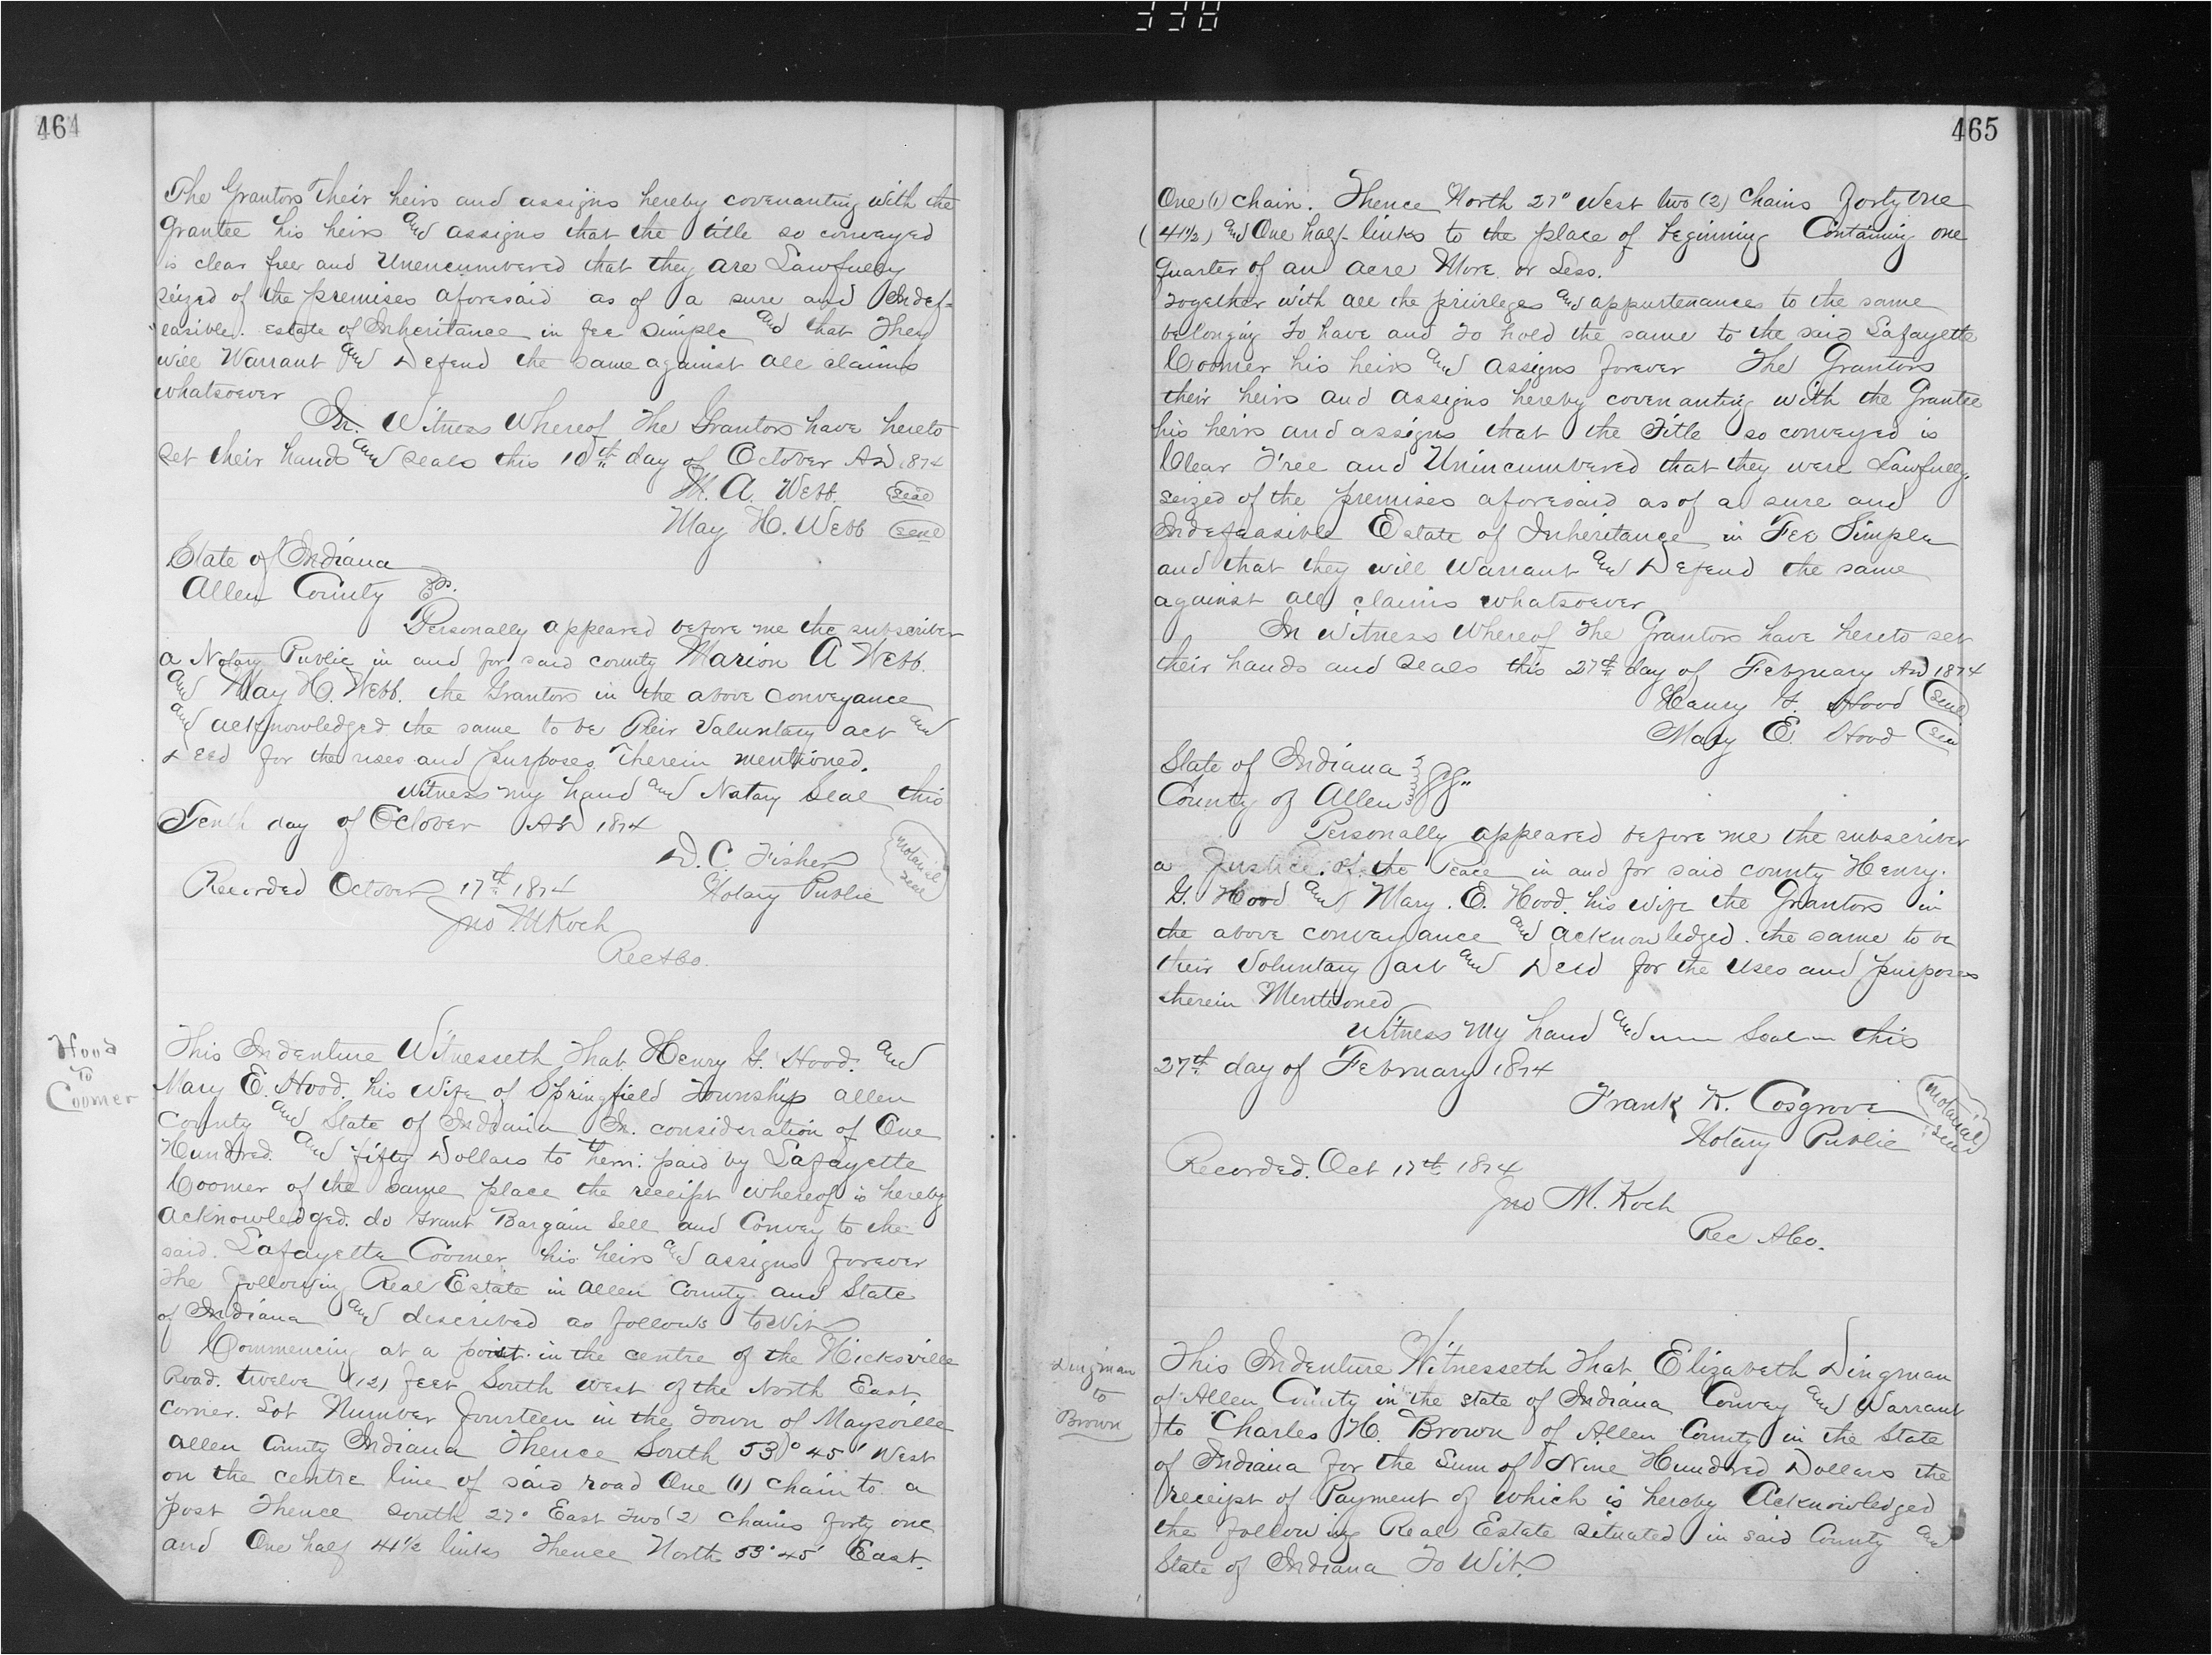 338
464
The Grantors Their heirs and assigns hereby covenanting with the
Grantee his heirs and assigns that the title so conveyed
is clear free and Unencumbered that they are Lawfully
seized of the premises aforesaid as of a sure and Indef-
easible. Estate of Inheritance in fee simple and that They
will Warrant and Defend the same against all claims
whatsoever
In Witness Whereof The Grantors have hereto
set their hands and seals this 10th day of October AD 1874
M. A. Webb. Seal
May H. Webb Seal
State of Indiana
Allen County SS.
Personally appeared before me the subscriber
a Notary Public in and for said county Marion A Webb.
and May H. Webb. the Grantors in the above conveyance
and acknowledged the same to be Their Voluntary act and
Deed for the uses and purposes Therein mentioned.
Witness my hand and Notary Seal this
Tenth day of October AD 1874
D. C. Fisher
Notary Public
Notarial Seal
Recorded October 17th 1874
Jno M Koch
Rec A Co.
Hood
To
Coomer
This Indenture Witnesseth That Henry G. Hood. and
Mary E. Hood. his Wife of Springfield Township allen
County and State of Indiana In. consideration of One
Hundred. and fifty Dollars to Them: paid by Lafayette
Coomer of the same place the receipt whereof is hereby
acknowledged. do Grant Bargain Sell and Convey to the
said. Lafayette Coomer his heirs and assigns forever
The following Real Estate in Allen County and State
of Indiana and described as follows to Wit
Commencing at a point in the centre of the Hicksville
Road. twelve (12) feet South west of the North East
corner. Lot Number Fourteen in the Town of Maysville
Allen County Indiana Thence South 53° 45' West
on the centre line of said road One (1) chain to a
post Thence south 27° East Two (2) chains forty one
and One half 41½ links Thence North 53° 45' East.
465
One (1) chain. Thence North 27° West two (2) Chains forty one
(41½) and One half links to the place of beginning Containing one
quarter of an acre More or Less.
Together with all the privileges and appurtenances to the same
belonging To have and to hold the same to the said Lafayette
Coomer his heirs and assigns forever The Grantors
their heirs and assigns hereby covenanting with the Grantee
his heirs and assigns that the Title so conveyed is
Clear Free and Unincumbered that they were Lawfully
seized of the premises aforesaid as of a sure and
Indefeasible Estate of Inheritance in Fee Simple
and that they will Warrant and Defend the same
against all claims whatsoever
In Witness Whereof The Grantors have hereto set
their hands and seals this 27th day of February AD 1874
Henry G. Hood Seal
Mary E. Hood Seal
State of Indiana
County of Allen SS"
Personally appeared before me the subscriber
a Justice of the Peace in and for said county Henry.
G. Hood and Mary. E. Hood. his wife the Grantors in
the above conveyance and acknowledged the same to be
their Voluntary act and Deed for the Uses and purposes
therein Mentioned
Witness My hand and Seal this
27th day of February 1874
Frank K. Cosgrove
Notary Public
Notarial Seal
Recorded. Oct 17th 1874
Jno M. Koch
Rec A Co.
Dingman
to
Brown
This Indenture Witnesseth That Elizabeth Dingman
of Allen County in the state of Indiana Convey and Warrant
to Charles H. Brown of Allen County in the State
of Indiana for the Sum of Nine Hundred Dollars the
receipt of Payment of which is hereby Acknowledged
the following Real Estate situated in said County and
State of Indiana To Wit.